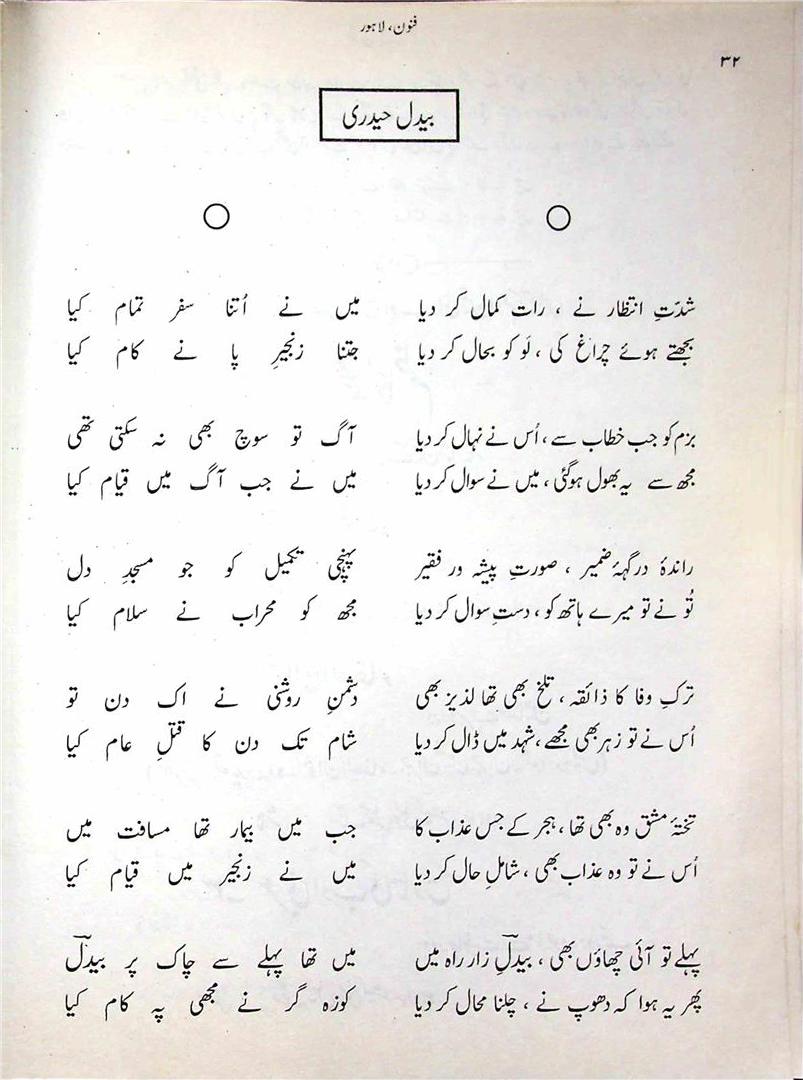 فنون، لاہور
۳۲
بیدل حیدری
شدّتِ انتظار نے ، رات کمال کر دیا
بجھتے ہوئے چراغ کی ، لَو کو بحال کر دیا
بزم کو جب خطاب سے ، اُس نے نہال کر دیا
مجھ سے یہ بھول ہوگئی ، میں نے سوال کر دیا
راندۂ درگہۂ ضمیر ، صورتِ پیشہ ور فقیر
تُو نے تو میرے ہاتھ کو ، دستِ سوال کر دیا
ترکِ وفا کا ذائقہ ، تلخ بھی تھا لذیز بھی
اُس نے تو زہر بھی مجھے، شہد میں ڈال کر دیا
تختۂ مشق وہ بھی تھا ، ہجر کے جس عذاب کا
اُس نے تو وہ عذاب بھی ، شاملِ حال کر دیا
پہلے تو آئی چھاؤں بھی ، بیدلِؔ زار راہ میں
پھر یہ ہوا کہ دھوپ نے ، چلنا محال کر دیا
میں نے اُتنا سفر تمام کیا
جتنا زنجیرِ پا نے کام کیا
آگ تو سوچ بھی نہ سکتی تھی
میں نے جب آگ میں قیام کیا
پہنچی تکمیل کو جو مسجدِ دل
مجھ کو محراب نے سلام کیا
دشمنِ روشنی نے اک دن تو
شام تک دن کا قتلِ عام کیا
جب میں بیمار تھا مسافت میں
میں نے زنجیر میں قیام کیا
میں تھا پہلے سے چاک پر بیدلؔ
کوزہ گر نے مجھی پہ کام کیا